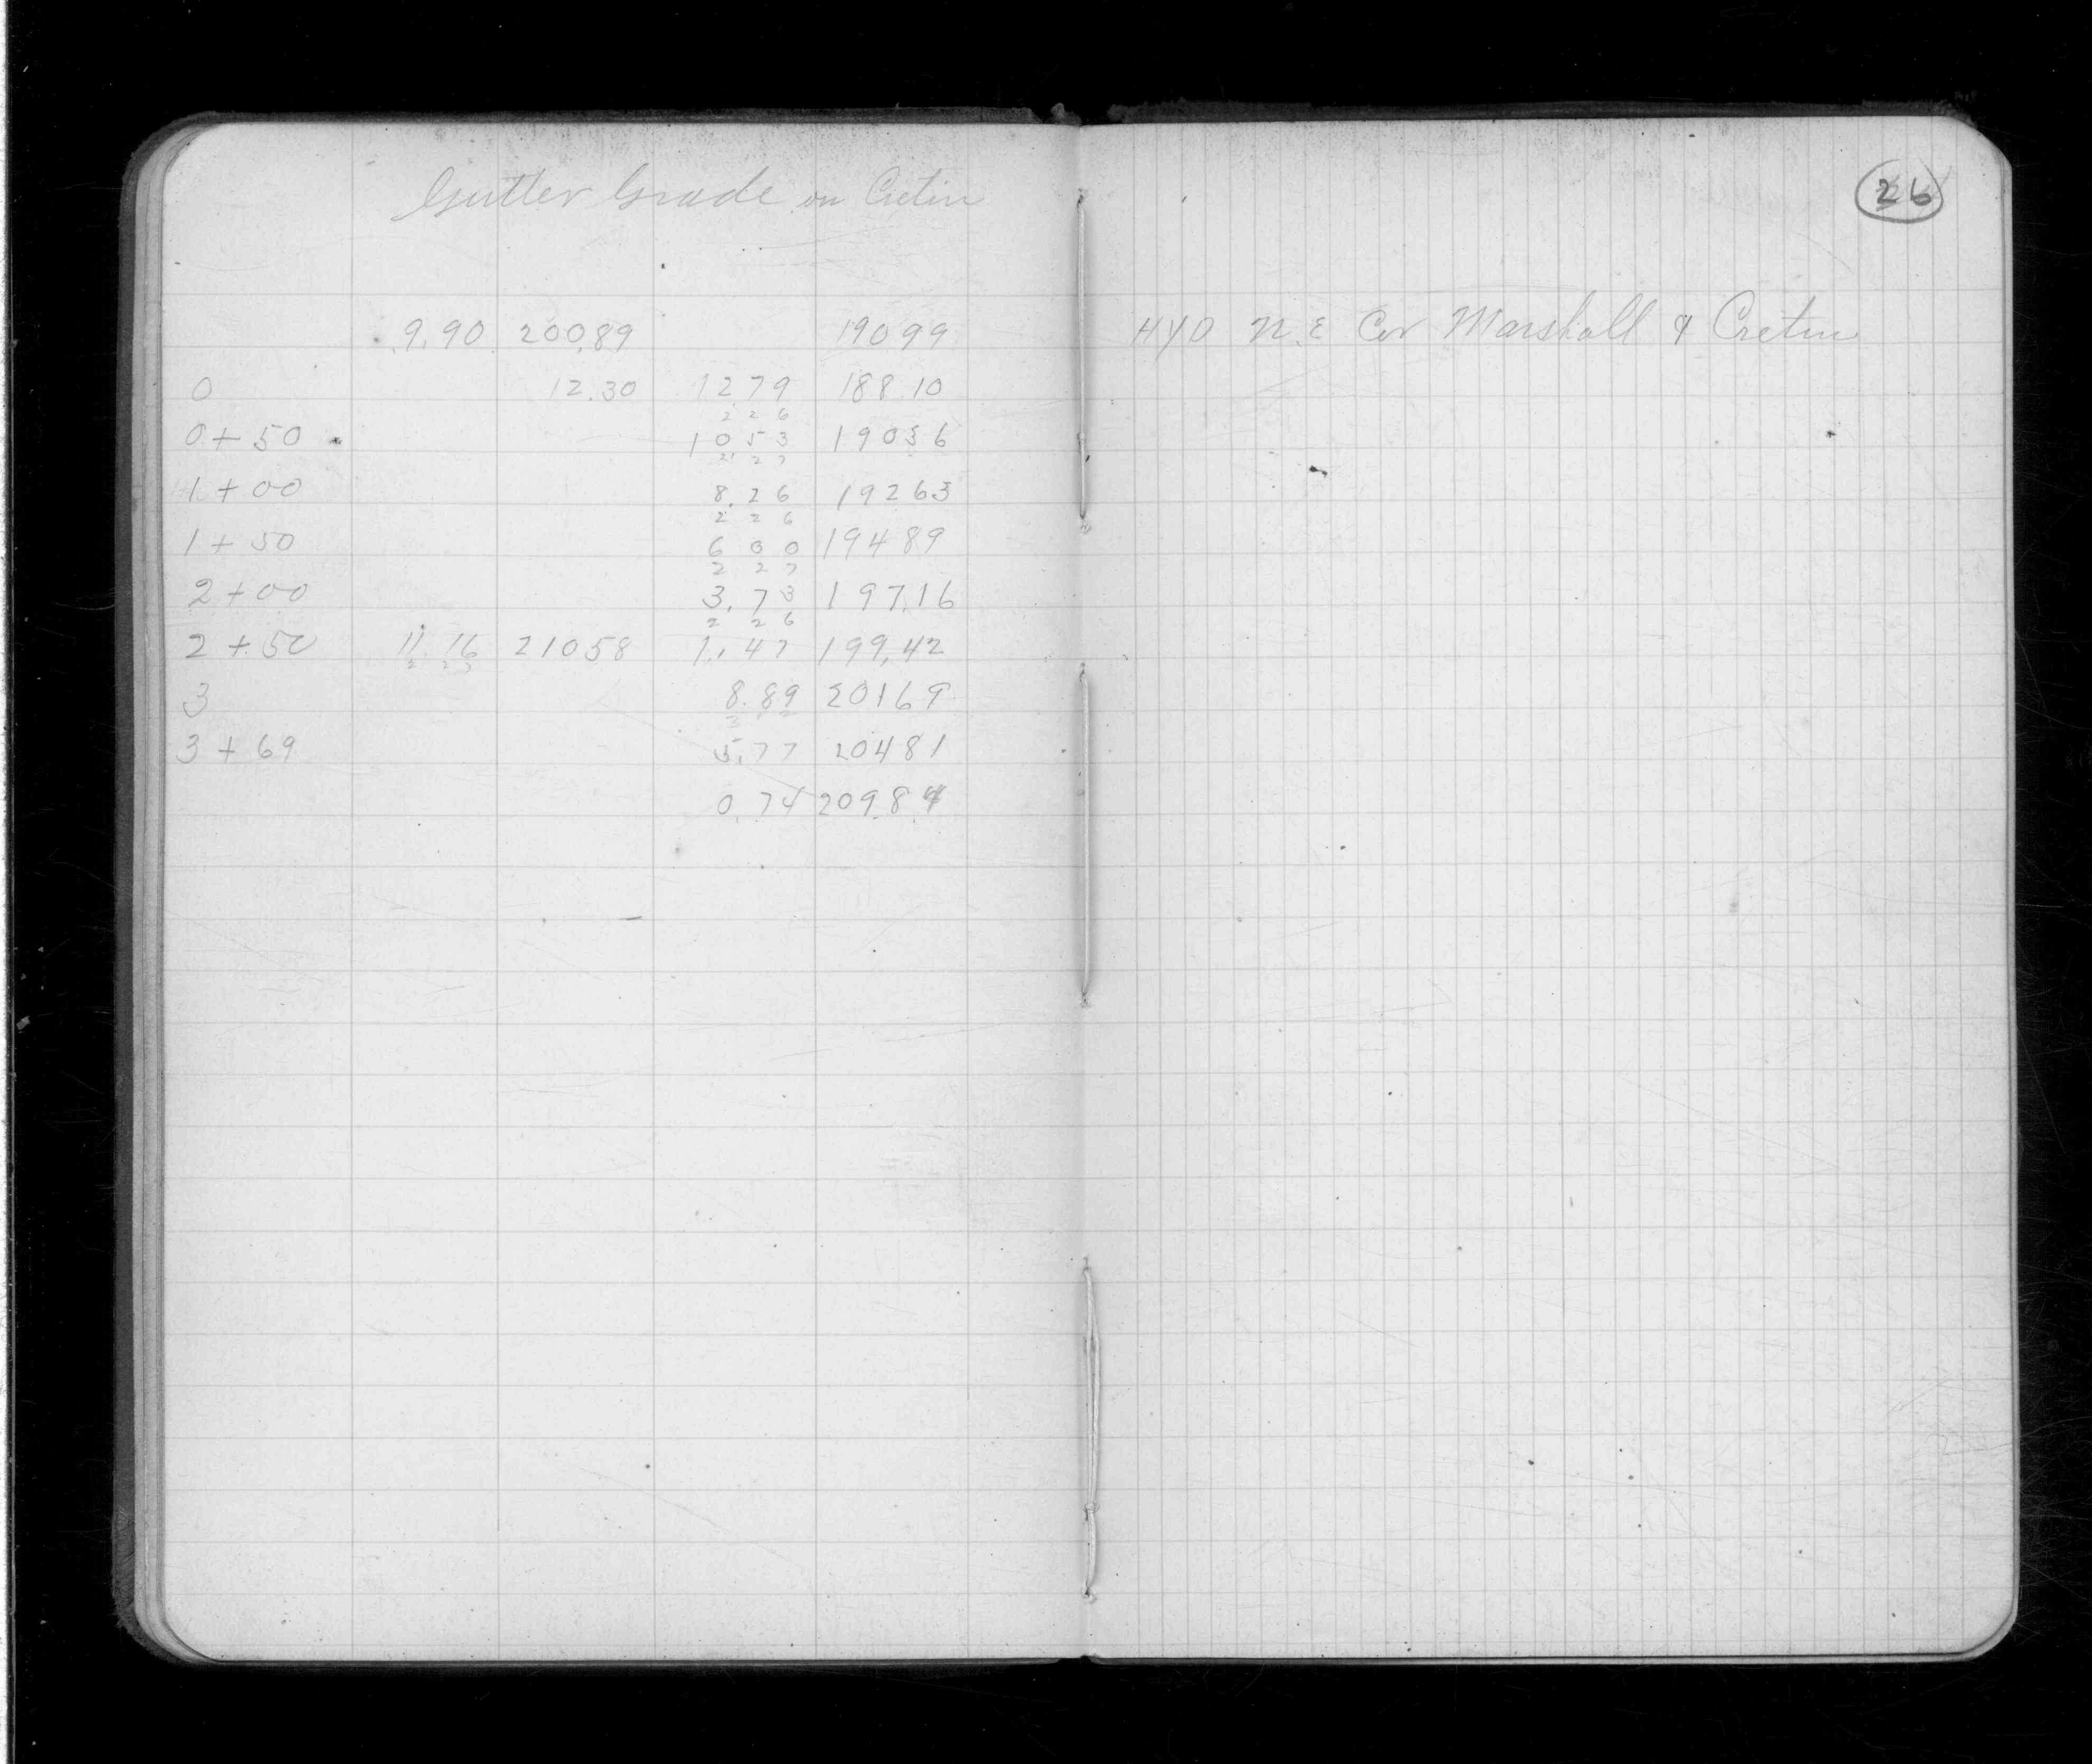 Gutter Grade on Cretin
26
9.90 200.89 190 99 HYD N.E Cor Marshall & Cretin
0 12.30 12 79 188.10
2 2 6
0+50 10 53 190 36
2 2 7
1+00 8.26 192 63
2 2 6
1+50 6 00 194 89
2 2 7
2+00 3.73 197.16
2 2 6
2+50 11.16 210 58 1.47 199.42
3 8.89 201 69
3+69 5.77 204 81
0.74 209.84